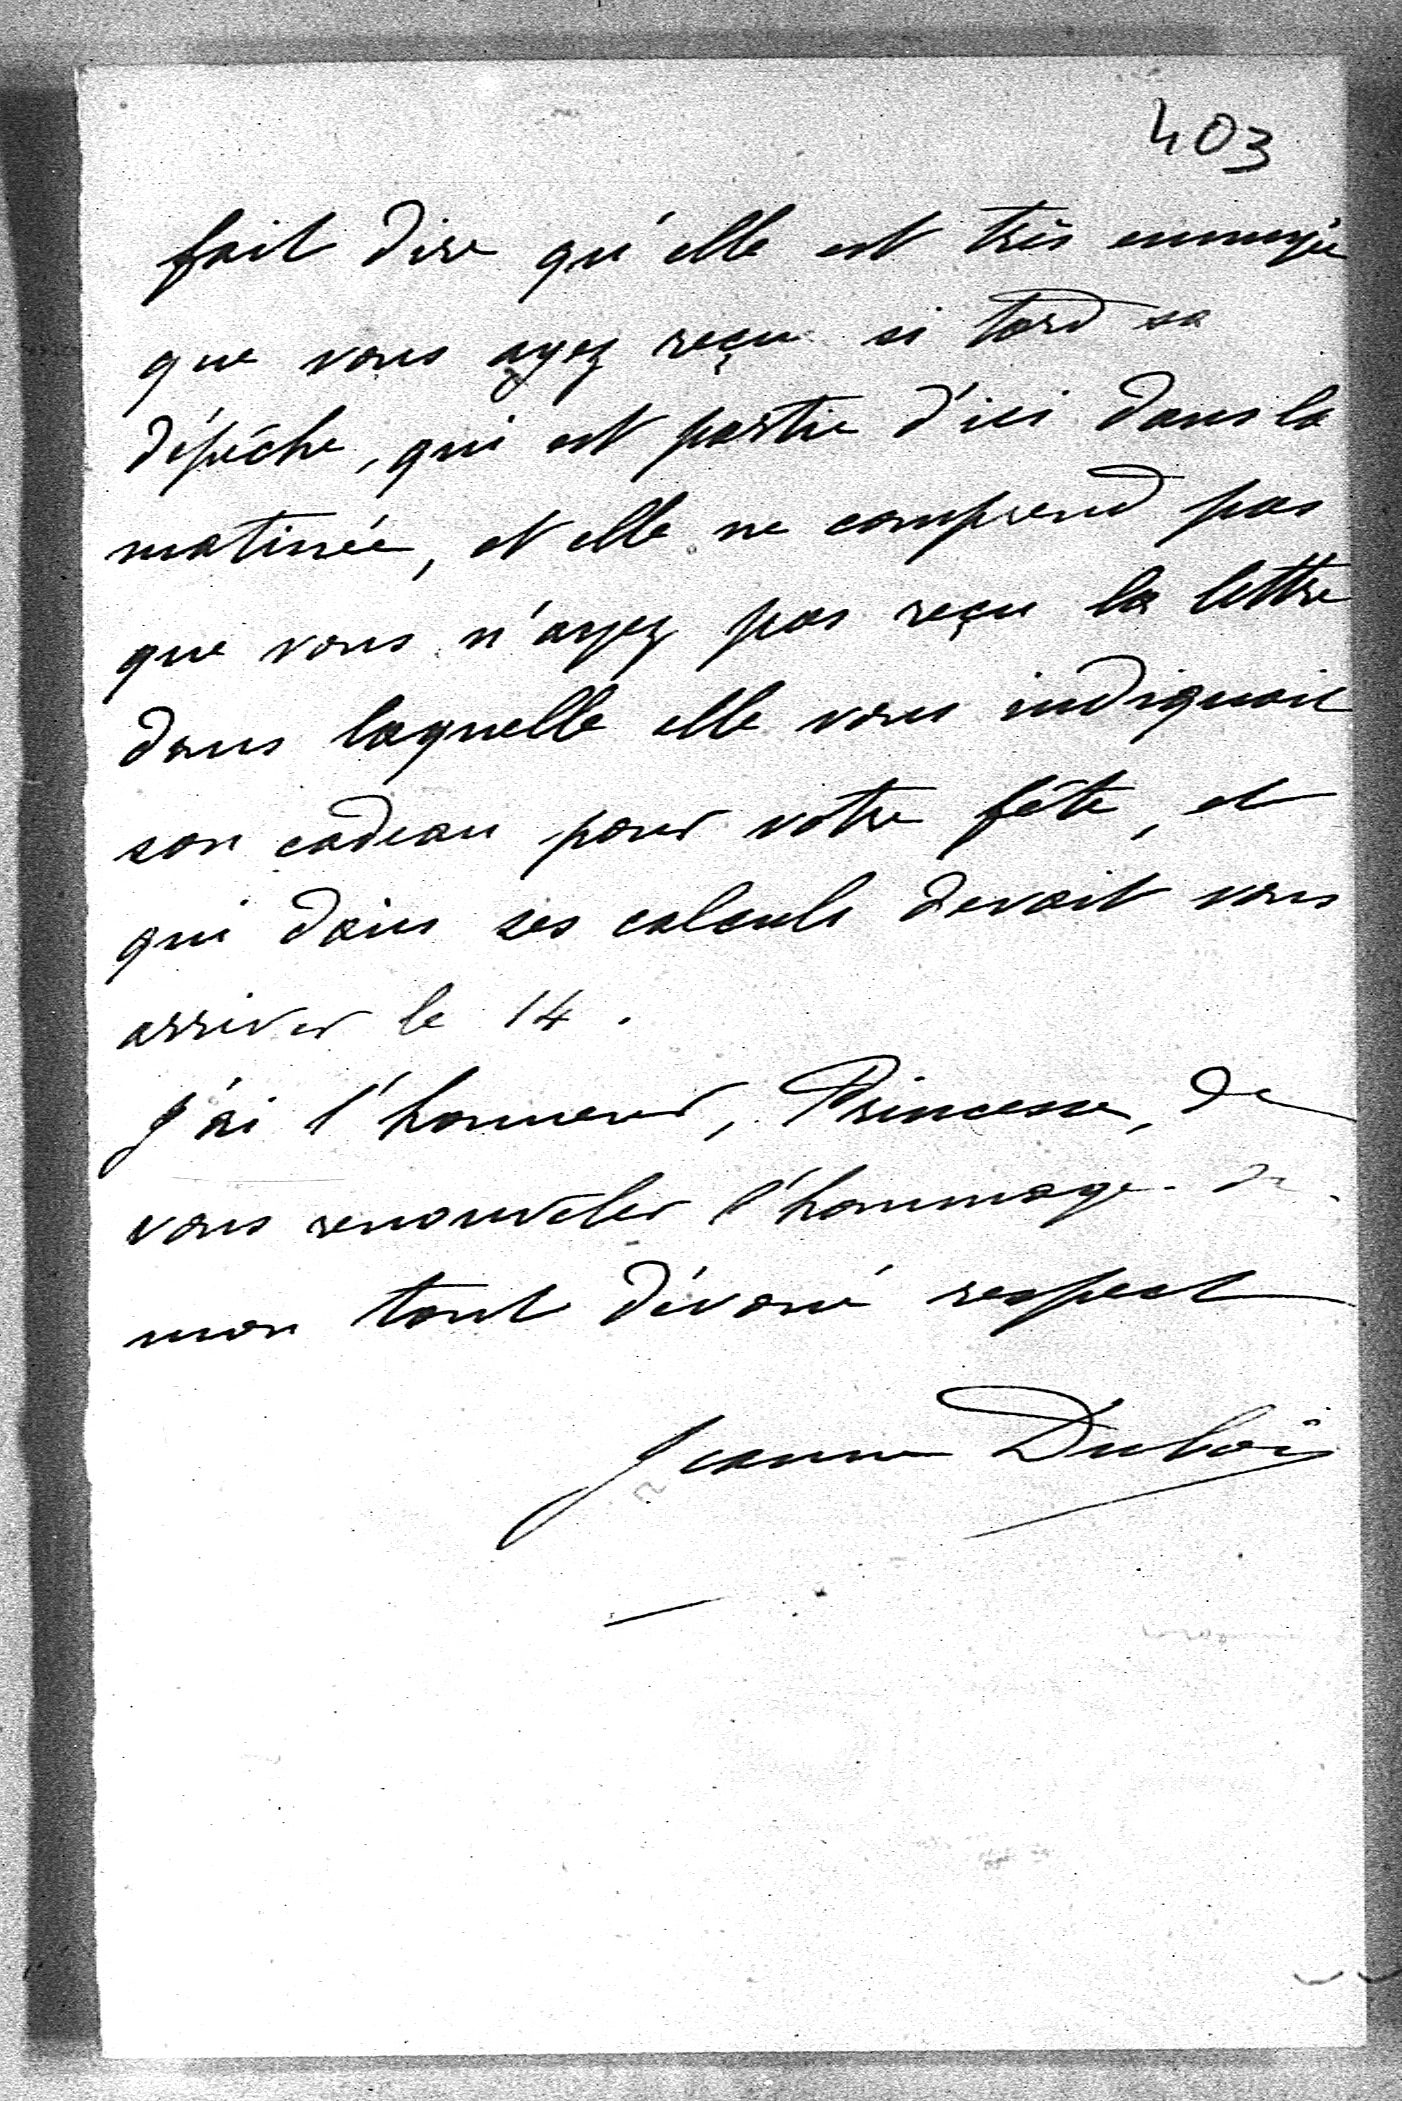 403
fait dire qu'elle est très ennuyée
que vous ayez reçu si tard sa
dépêche, qui est partie d'ici dans la
matinée, et elle ne comprend pas
que vous n'ayez pas reçu la lettre
dans laquelle elle vous indiquait
son cadeau pour votre fête, et
qui dans ses calculs devait vous
arriver le 14.
J'ai l'honneur, Princesse, de
vous renouveler l'hommage de
mon tout dévoué respect
Jeanne Dubois